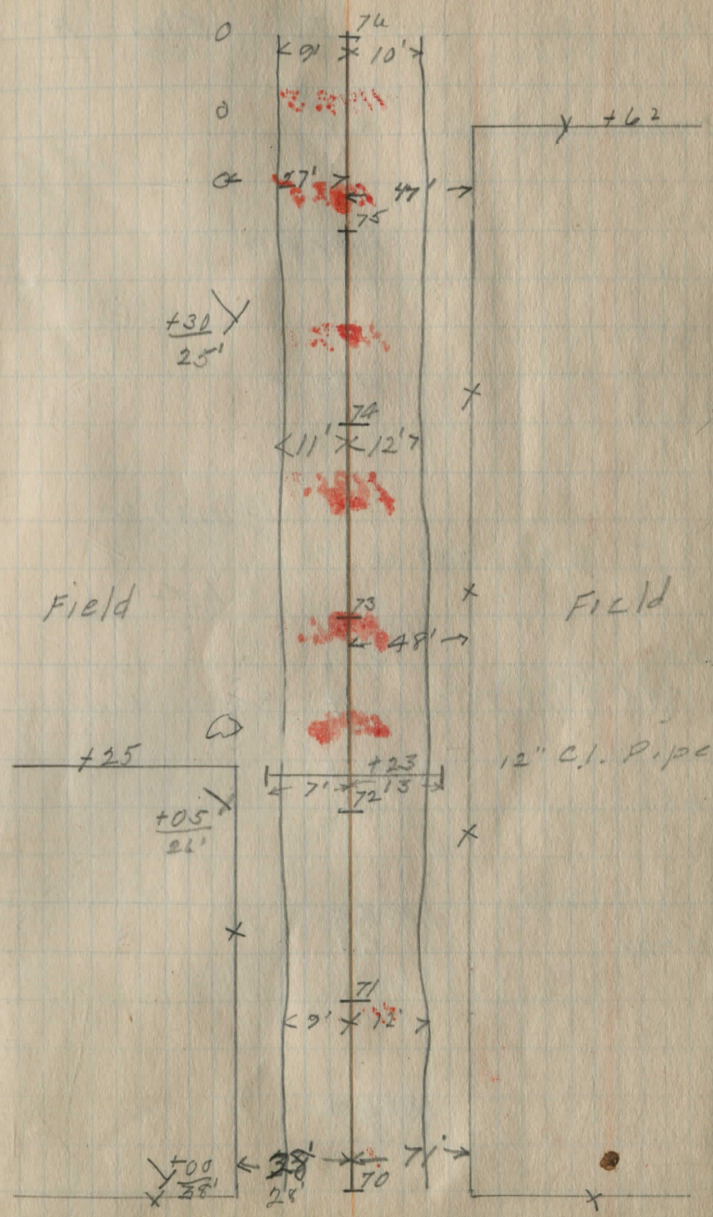 76
9' 10'
+62
27' 47'
75
+30
25'
74
11' 12'
Field
73
Field
48'
+25
+23
12" C.I. Pipe
7' 13'
72
+05
71
9' 12'
+00
28'
71'
28'
70